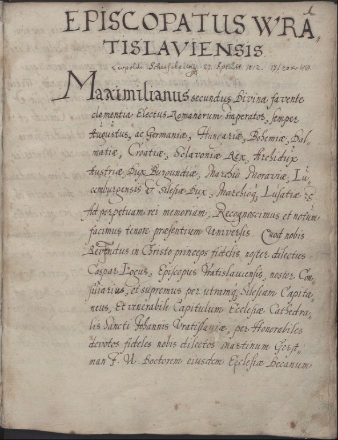 EPISCOPATUS WRA
TISLAVIENSIS
Maximilianus secundus Divina favente
clementia Electus Romanorum imperator, semper
Augustus, ac Germaniæ, Hungariæ, Bohemiæ, Dal
matiæ, Croatiæ, Sclavoniæ Rex, Archidux
Austriæ, Dux Burgundiæ, Marchio Moraviæ, Lu
cemburgensis & Silesiæ Dux, Marchioq Lusatiæ
Ad perpetuam rei memoriam, Recognoscimus et notum
facimus tenore præsentium Universis. Quod nobis
in Christo princeps fidelis noster dilectus
Caspar Episcopus Vratislaviensis, noster Con,
siliarius, et supremus per utramq Silesiam Capita,
neus, Et venerabile Capitulum Ecclesiæ Cathedra,
lis Sancti Johannis Vratislaviæ, per Honorabiles
devotos fideles nobis dilectos Martinum Gerst,
man I. V. Doctorem eiusdem Ecclesiæ Decanum